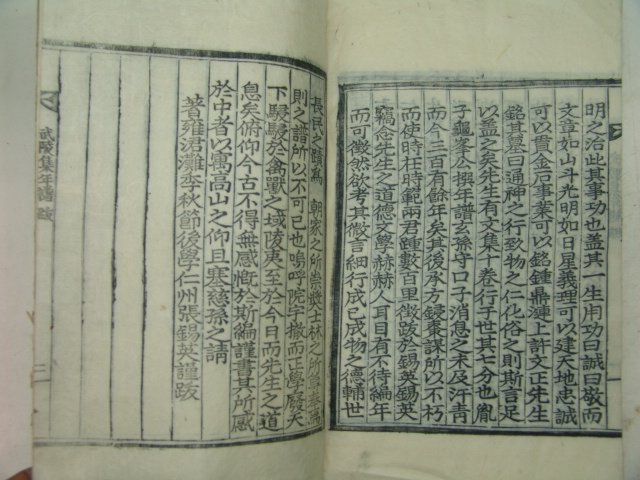 明之治此其事功也盖其一生用功曰誠曰敬而
文章如山斗光明如日星義理可以建天地忠誠
可以貫金石事業可以銘鍾鼎漣上許文正先生
銘其墓曰通神之行致物之仁化俗之則斯言足
以盖之矣先生有文集十卷行于世其七分也胤
子龜峯公撰年譜玄孫守口子消息之未及汗靑
而今三百有餘年矣其後承方鋟棗謀所以不朽
而使時柱時範兩君踵數百里徵跋於錫英錫英
竊念先生之道德文學赫赫人耳目有不待編年
而可徵然欲考其微言細行成已成物之德輔世
長民之蹟爲 朝家之所崇奬士林之所
則之譜所以不可已也嗚呼院宇撤而正學廢天
下駸駸於禽獸之域陵夷至於今日而先生之道
息矣俯仰今古不得無感慨於斯編謹書其所感
於中者以寓高山之仰且塞慈孫之請
著雍涒灘李秋節後學仁州張錫英謹跋
武陵集年譜 跋
二